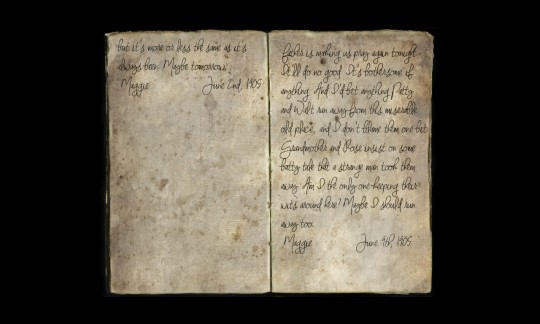 but it's more or less the same as it's
always been. Maybe tomorrow.
Maggie June 2nd, 1905
Father is making us pray again tonight.
It'll do no good. It's bothersome if
anything. And I'd bet anything Patty
and Walt run away from this miserable
old place, and I don't blame them one bit.
Grandmother and Rose insist on some
batty tale that a strange man took them
away. Am I the only one keeping their
wits around here? Maybe I should run
away too.
Maggie June 9th, 1905